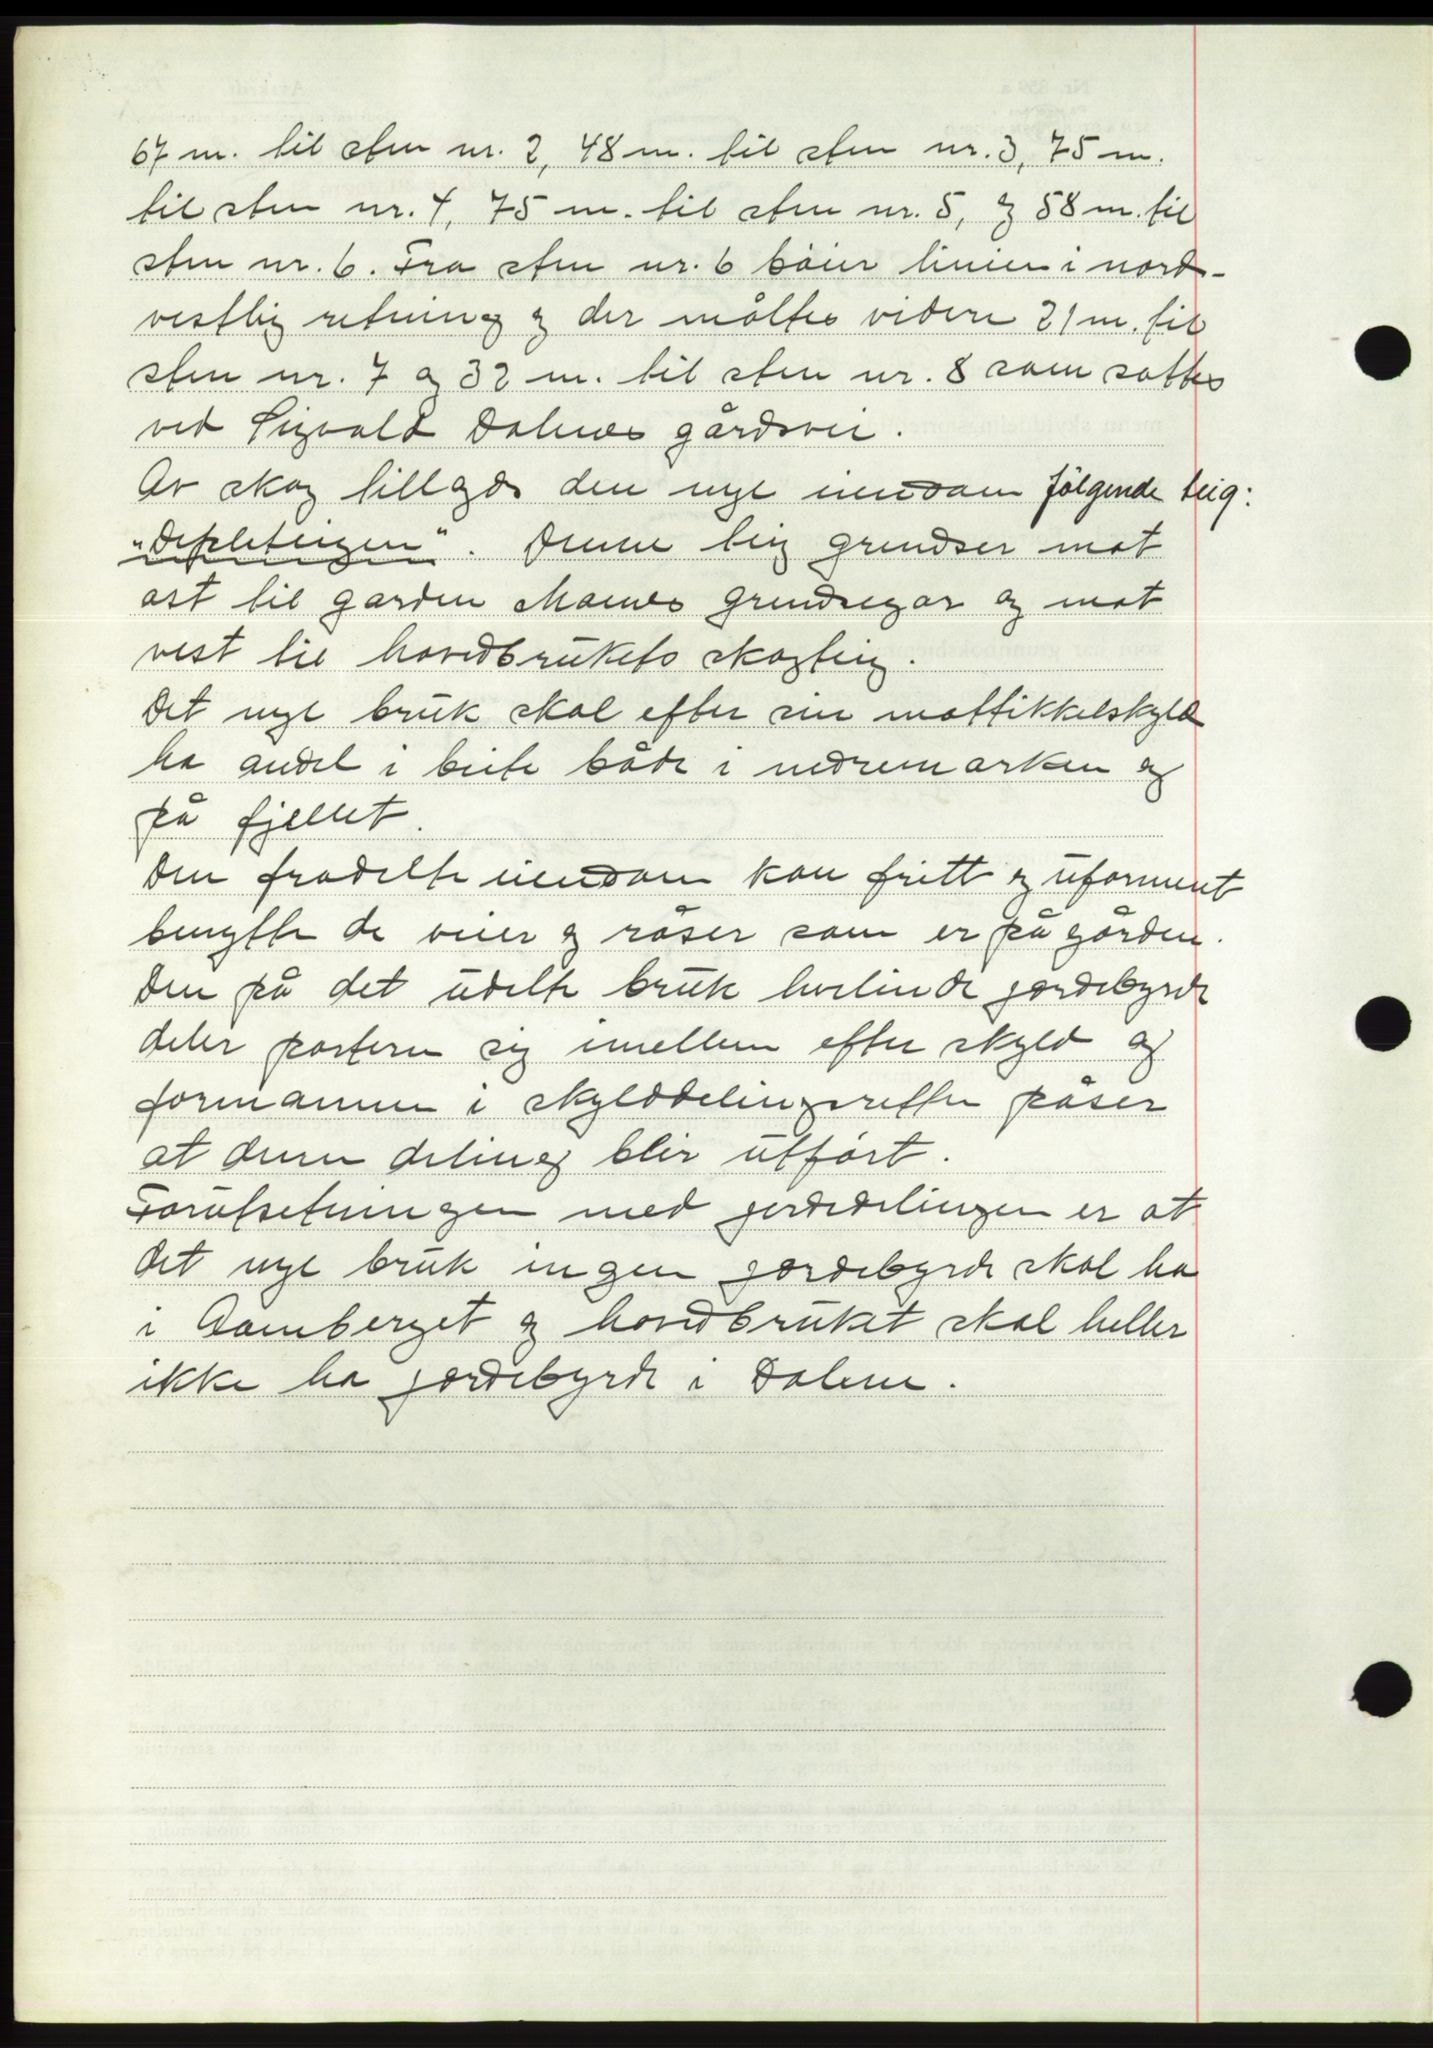 67 m. til sten nr. 2, 48 m. til sten nr. 3, 75 m.
til sten nr. 4, 75 m. til sten nr. 5, og 58 m. til
sten nr. 6. Fra sten nr. 6 bøier linien i nord-
vestlig retning og der måltes videre 21 m. til
sten nr. 7 og 32 m. til sten nr. 8 som sattes
ved Sigvald Dalenes gårdsvei.
Av skog tillegges den nye eiendom følgende teig:
"Depleteigen". Denne teig grendser mot
ost til garden Moenes grendsegar og mot
vest til hovedbrukets skogteig.
Det nye bruk skal efter sin mattikkelskyld
ha andel i beite både i nedremarken og
på fjellet.
Den fradelte eiendom kan fritt og uforment
benytte de veier og råser som er på gården.
Den på det udelte bruk hvelinde gjerdebyrde
deler partene sig imellem efter skyld og
formannen i skylddelingsretten påser
at denne deling blir utført.
Forutsetningen med gjerdedelingen er at
det nye bruk ingen gjerdebyrde skal ha
i Aamberget og hovedbruket skal heller
ikke ha gjerdebyrde i Dalene.